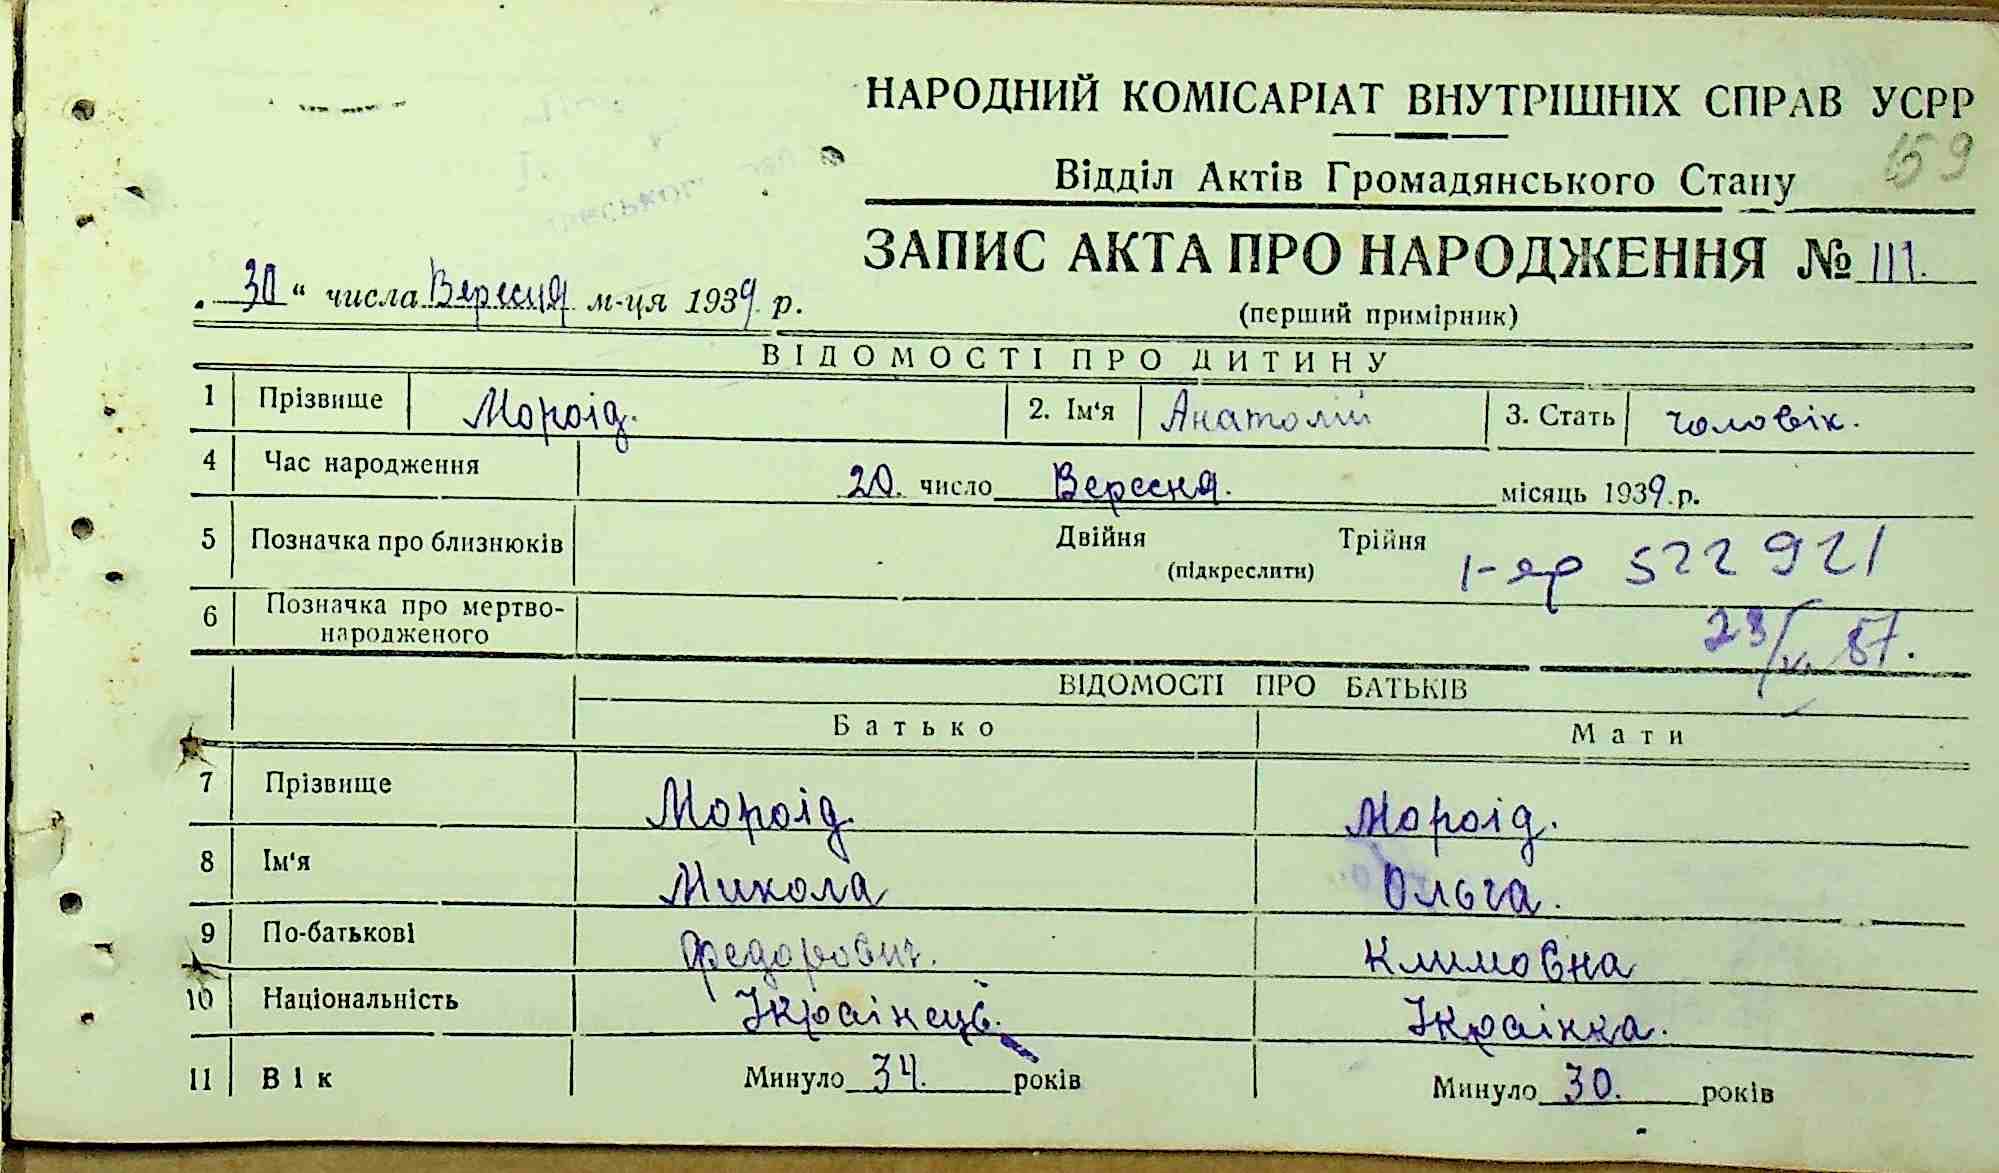 НАРОДНИЙ КОМІСАРІАТ ВНУТРІШНІХ СПРАВ УСРР
159
Відділ Актів Громадянського Стану
ЗАПИС АКТА ПРО НАРОДЖЕННЯ № 111.
„ 30 “ числа Вересня м-ця 1939 р.
(перший примірник)
ВІДОМОСТІ ПРО ДИТИНУ
1 Прізвище Мороід. 2. Ім‘я Анатолій 3. Стать чоловік.
4 Час народження 20. число Вересня. місяць 1939.р.
5 Позначка про близнюків Двійня Трійня
(підкреслити)
І-яр 522921
6 Позначка про мертво-
народженого
23/V. 57.
ВІДОМОСТІ ПРО БАТЬКІВ
Батько Мати
7 Прізвище Мороід. Мороід.
8 Ім‘я Микола Ольга.
9 По-батькові Федорович. Климовна
10 Національність Українець. Українка.
11 Вік Минуло 34. років Минуло 30. років